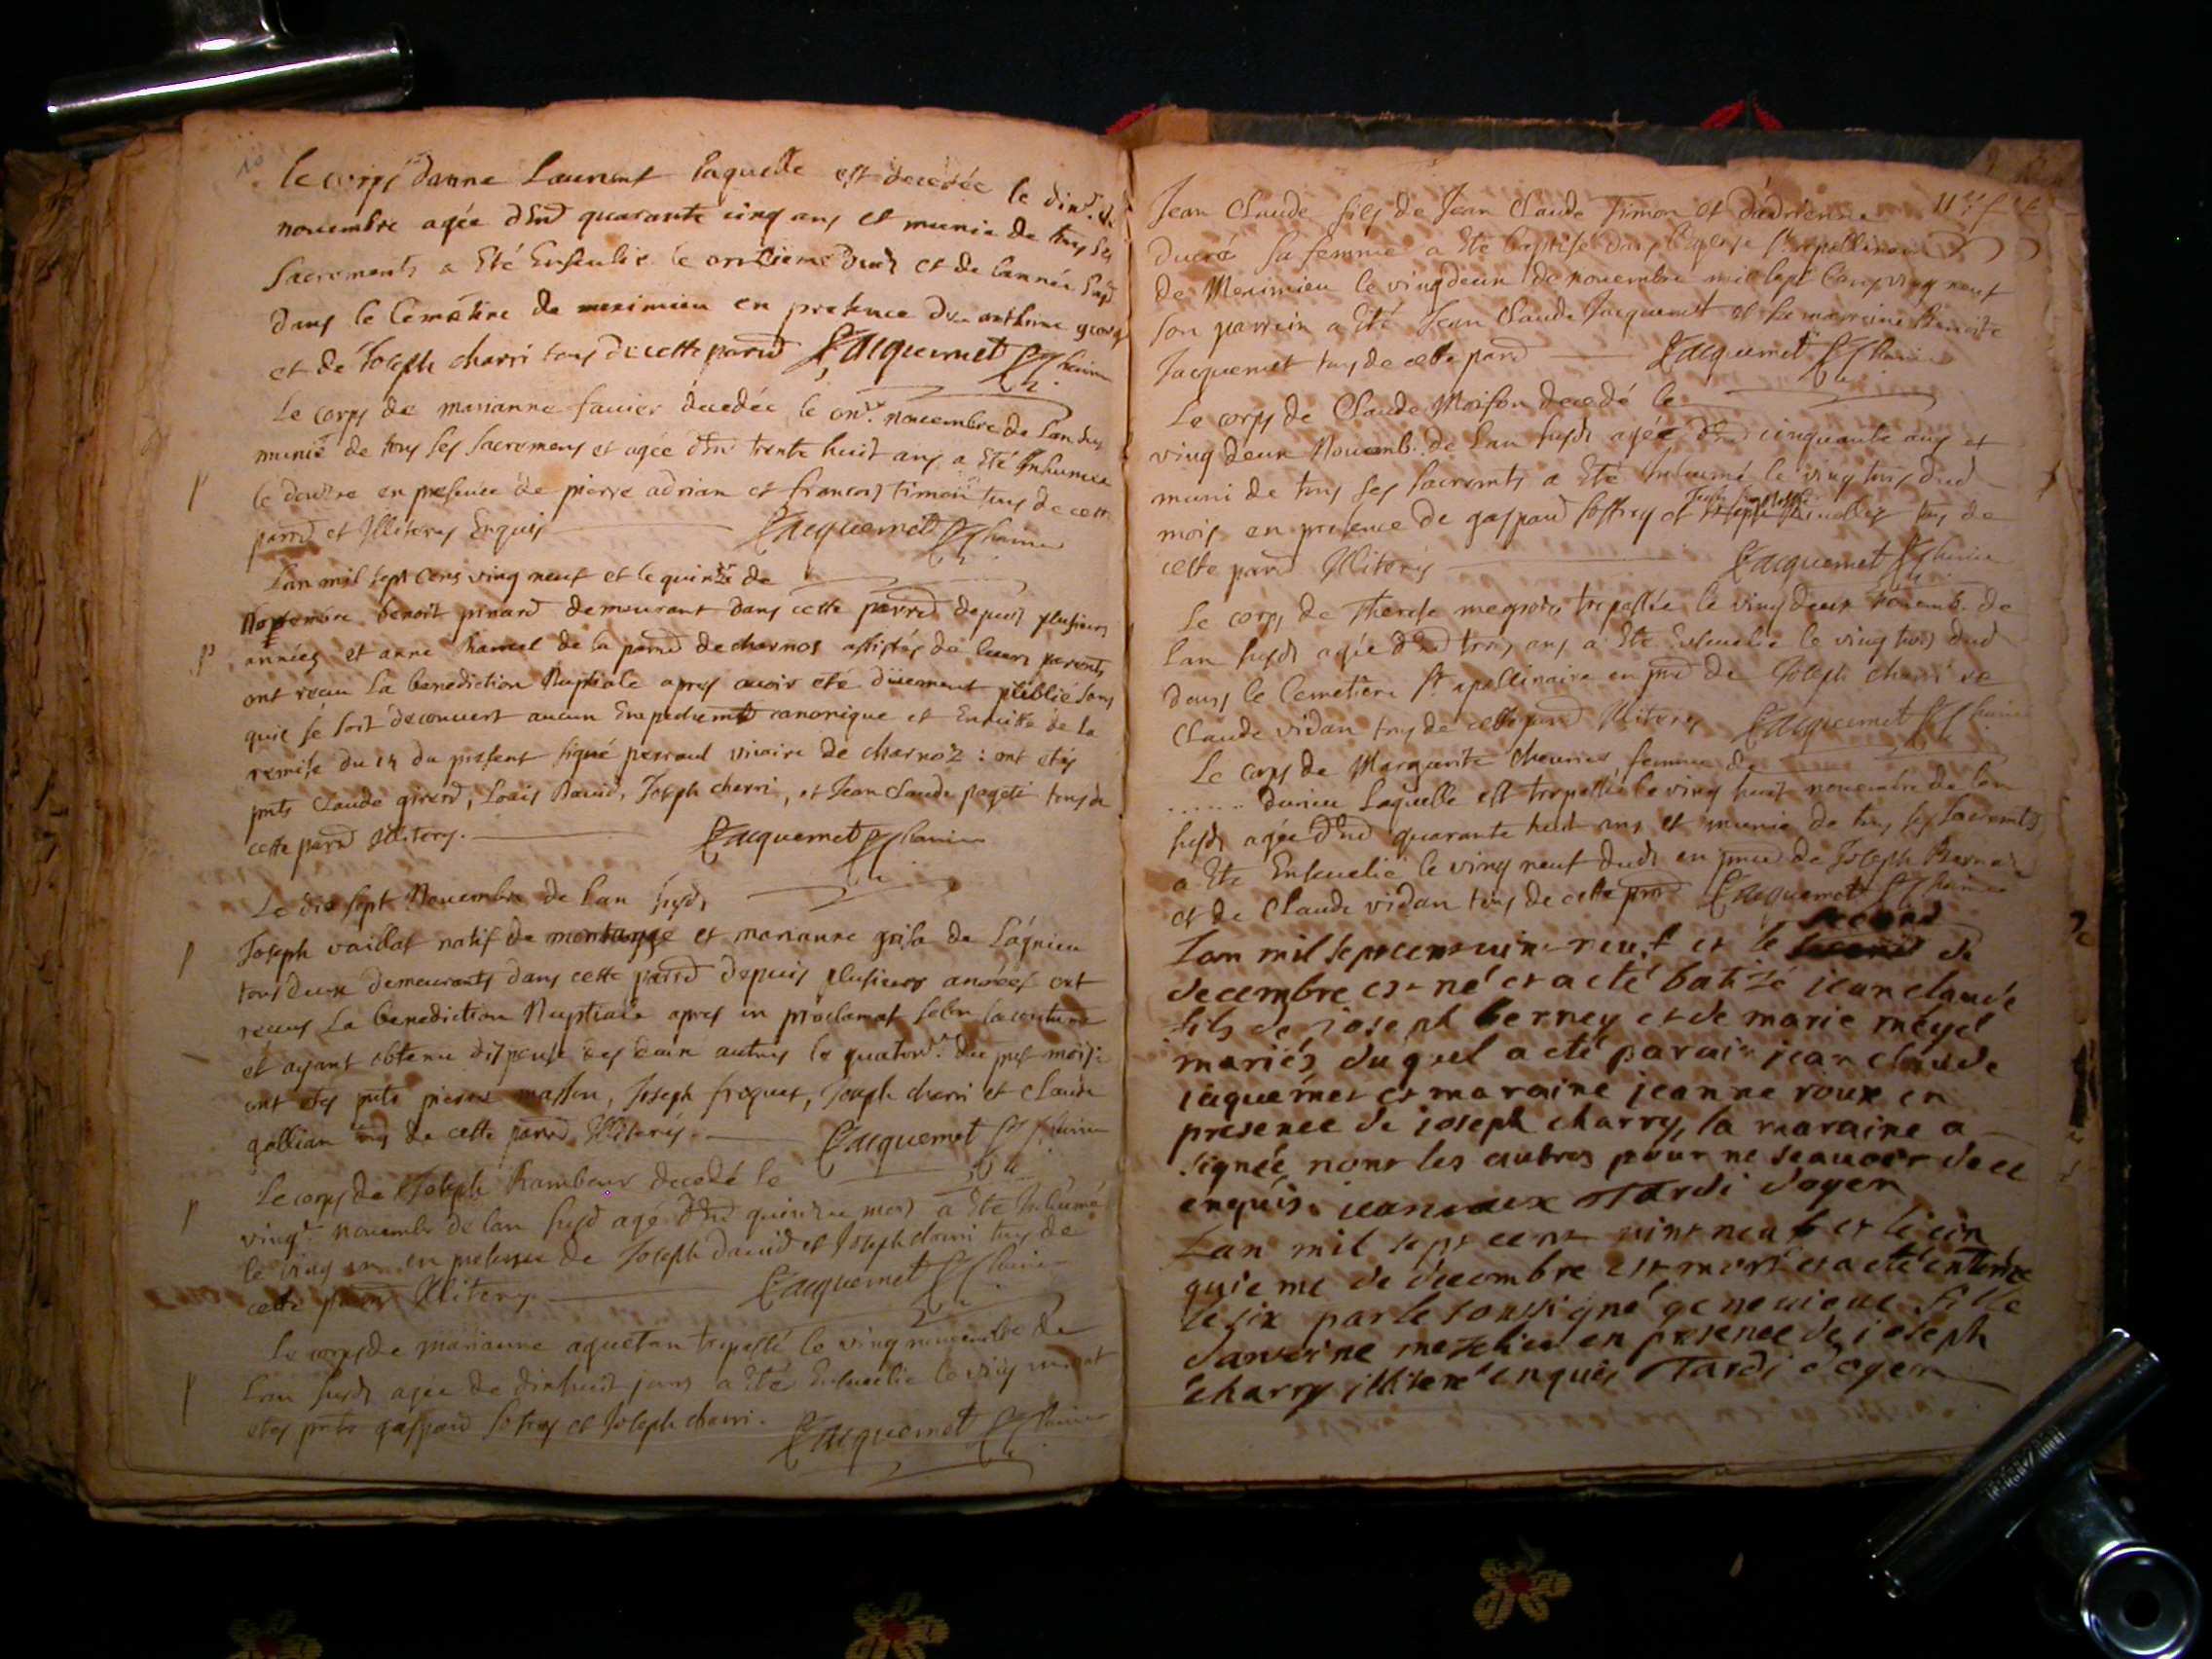 le corps danne Laurent laquelle est decedée le dix.e de
novembre agée d'End quarante cinq ans et munie de tous ses
sacrements a Eté Ensevelie le onzieme dud et de lannée susd
dans le Cemetiere de meximieu en presence de anthoine
et de Joseph charri tous de cette parr.d Jacquemet
Le corps de marianne favier décedée le onz. novembre de lan susd
munie de tous ses sacremens et agée d'End trente huit ans a Eté Inhumée
le douzre en presence de pierre adrian et francois timon tous de cette
parrd et Illiteres Enquis Jacquemet
Lan mil sept Cens ving neuf et le quinze de
Novembre benoit pinard demeurant dans cette parrd depuis plusieurs
années et anne hamel de la parrd de charnos assistés de leurs parents
ont recu la benediction Nuptiale apres avoir eté düement publié sans
quil se soit decouvert aucun Empechement canonique et Ensuitte de la
remise du 14 du present signé perraud vicaire de charnoz : ont étés
pnts Claude girard, Louis David, Joseph charri, et Jean Claude pageti tous de
cette parrd Illiterés. Jacquemet
Le dix sept Novembre de lan susd
Joseph vaillat natif de montange et marianne grisa de Lágnieu
tous deux demeurants dans cette parrd depuis plusieurs années ont
recus la benediction Nuptiale apres un proclamat selon la coutume
et ayant obtenu dispense des deux autres le quator.e du pnt mois :
ont etes pnts pierre masson, Joseph froquet, Joseph charri et Claude
gallian tous de cette parrd Illiterés. Jacquemet
Le corps de Joseph Rambeur decedé le
ving.e novembr de lan susd agé d'End quinze mois a Eté Inhumé
le ving un en presence de Joseph david et Joseph charri tous de
cette parrd Illiterés. Jacquemet
Le corps de marianne aquetan trepassé le ving novembre de
Lan susd agée de dixhuit jours a Eté Ensevelie le ving un ont
etes pnts gaspard sofrey et Joseph charri. Jacquemet
Jean Claude fils de Jean Claude Timon et dádrienne
Ducré sa femme a Eté baptisé dans l'église St apollinaire
de Meximieu le vingdeux de novembre mil sept Cens ving neuf
son parrein a Eté Jean Claude Jacquemet et sa marreine Benoite
Jacquemet tous de cette parrd Jacquemet
Le corps de Claude Moison decedé le
ving deux Novemb. de lan susd agée d'End cinquante ans et
muni de tous ses sacremts a Eté Inhumé le ving trois dud
mois en presence de gaspard soffrey et tous de
cette parrd Illiterés Jacquemet
Le corps de Therese megrois trepassée le ving deux Novemb. de
lan susd agée d'End trois ans a Eté Ensevelie le ving trois dud
dans le Cemetiere St apollinaire en pnce de Joseph charri et
Claude vidan tous de cette parrd Illiterés Jacquemet
Le corps de Marguerite chevrier femme de
...... durieu Laquelle est trepassée le ving huit novembre de lan
susd agée d'End quarante huit ans et munie de tous ses sacremts
a Eté Ensevelie le ving neuf dud en pnce de Joseph Bernard
et de Claude vidan tous de cette parrd Jacquemet
second
Lan mil septcent vint neuf et le de
decembre est né et a eté batizé jean claude
fils de joseph berney et de marie méyel
mariés duquel a eté parain jean claude
jaquemet et maraine jeanne roux en
presence de joseph charry, la maraine a
signée nont les autres pour ne scavoir de ce
enquis. jeanroux Tardi doyen
Lan mil sept cent vint neuf et le cin
quieme de decembre est mort et a eté enterée
le six par le soussigné genevieve fille
dantoine methieu en presence de joseph
charry illiteré enquis Tardi doyen